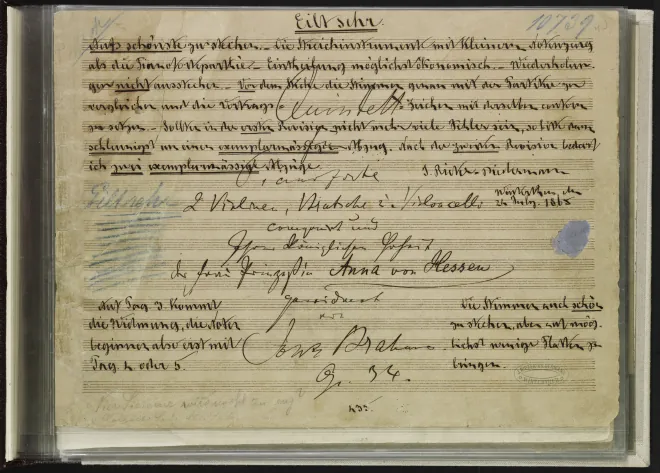 Eilt sehr.
10739
Aufs schönste zu stechen. Die Streichinstrumente mit kleineren Notenzug
als die Pianofortepartie. – Eintheilung möglichst ökonomisch. – Wiederholun-
gen nicht ausstechen. – Vor dem Stiche die Stimmen genau mit der Partitur zu
vergleichen und die Zeichen mit derselben conform
Quintett
zu setzen. – Sollten in der ersten Revision nicht mehr viele Fehler sein, so bitte dann
schleunigst um einen exemplarmässigen Abzug. Nach der zweiten Revision bedarf
ich zwei exemplarmässige Abzüge.
J. Rieter-Biedermann
Pianoforte
Eilt sehr
2 Violinen, Bratsche u. Violoncello
den
24 July. 1865
componirt und
Ihrer Königlichen Hoheit
der Frau Prinzessin Anna von Hessen
gewidmet
von
Johs Brahms
Op. 34.
Auf Pag. 3. kommt
die Widmung, die Noten
beginnen also erst mit
Pag. 4 oder 5.
Die Stimmen auch schön
zu stechen, aber auf mög-
lichst wenige Platten zu
bringen.
435.